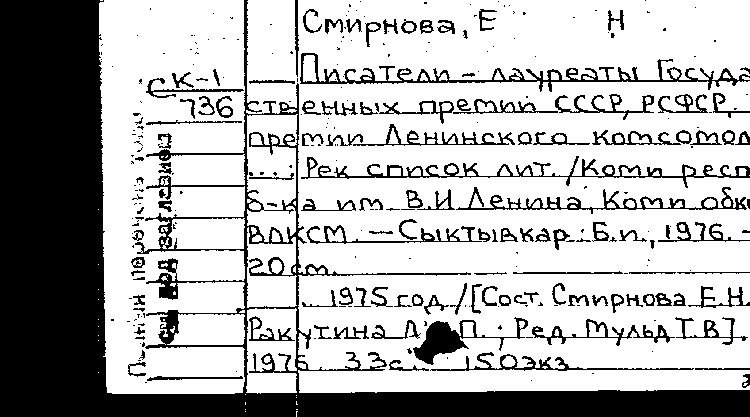 Смирнова, Е Н
Писатели – лауреаты Госуда
СК-1
736
ственных премий СССР, РСФСР,
премии Ленинского комсомол
...: Рек список лит. /Коми респ
б-ка им. В.И Ленина, Коми обк
ВЛКСМ. — Сыктывкар : Б.и., 1976. –
20 см.
.. 1975 год / [Сост. Смирнова Е.Н.
Ракутина П. ; Ред. Мульд Т.В].
1976 33с. 150экз
Полный перечень
см под заглавием